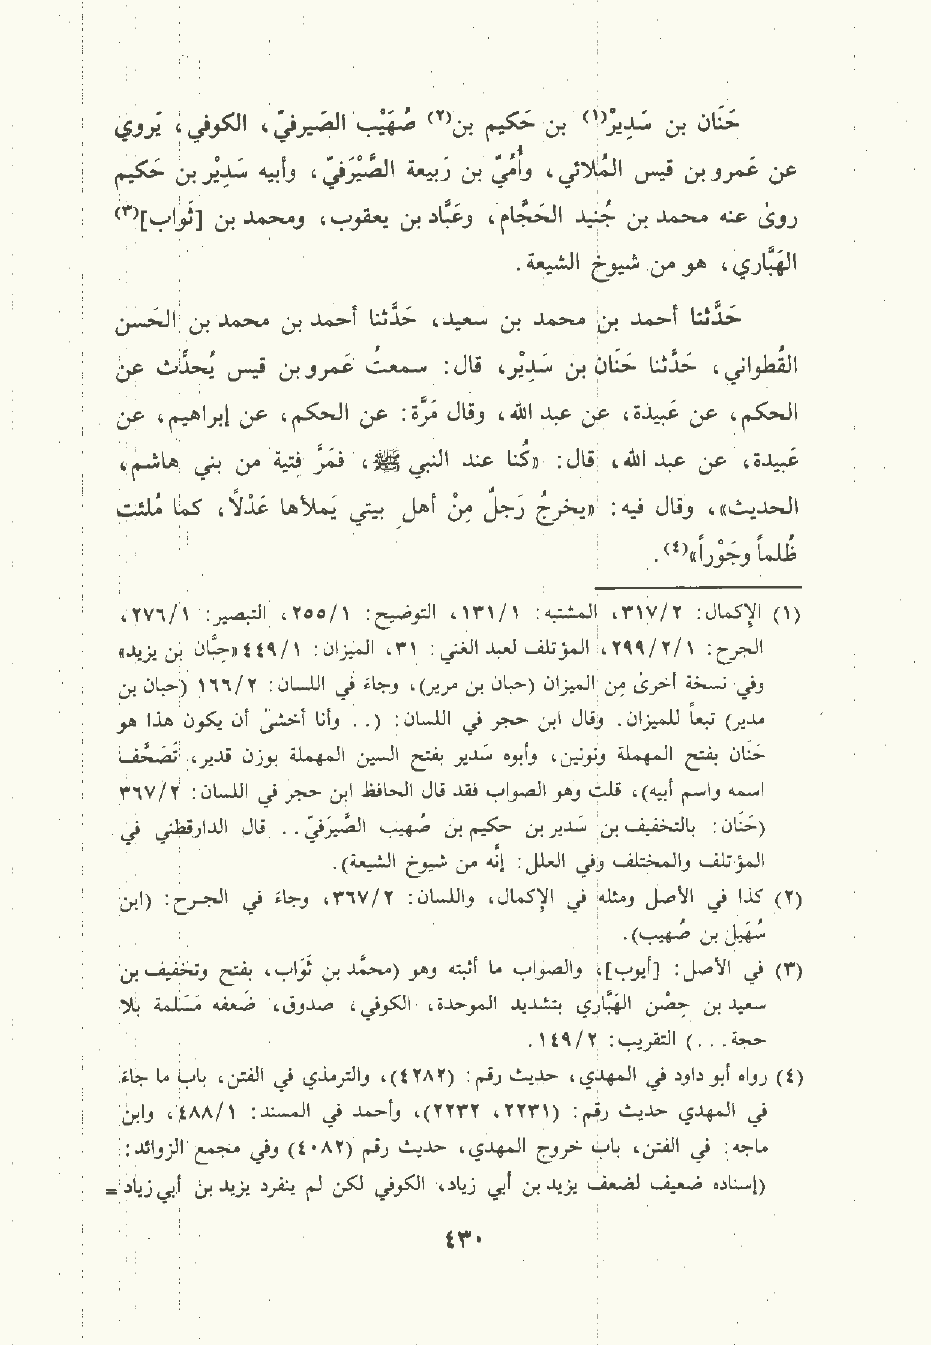 حَنَان بن سَدِيرْ(١) بن حَكيم بن(٢) صُهَيْب الصَيرفيّ، الكوفي، يَروي
عن عَمرو بن قيس المُلائي، وأُمَيّ بن رَبيعة الصَّيْرَفيّ، وأبيه سَدِيْر بن حَكيم
روىٰ عنه محمد بن جُنيد الحَجَّام، وعَبَّاد بن يعقوب، ومحمد بن [ثَواب](٣)
الهَبَّاري، هو من شيوخ الشيعة.
حَدَّثنا أحمد بن محمد بن سعيد، حَدَّثنا أحمد بن محمد بن الحَسن
القُطواني، حَدَّثنا حَنَان بن سَدِيْر، قال: سمعتُ عَمرو بن قيس يُحدَّث عن
الحكم، عن عَبيدة، عن عبد الله، وقال مَرَّة: عن الحكم، عن إبراهيم، عن
عَبيدة، عن عبد الله، قال: «كُنا عند النبي ﷺ، فمَرَّ فتية من بني هاشم،
الحديث»، وقال فيه: «يخرجُ رَجلٌ مِنْ أهل بيتي يَملأها عَدْلاً، كما مُلئت
ظُلماً وجَوْراً»(٤).
(١) الإكمال: ٣١٧/٢، المشتبه: ١٣١/١، التوضيح: ٢٥٥/١، التبصير: ٢٧٦/١،
الجرح: ٢٩٩/٢/١، المؤتلف لعبد الغني: ٣١، الميزان: ٤٤٩/١ «حِبَّان بن يزيد»
وفي نسخة أخرىٰ مِن الميزان (حبان بن مرير)، وجاءَ في اللسان: ١٦٦/٢ (حبان بن
مدير) تبعاً للميزان. وقال ابن حجر في اللسان: (.. وأنا أخشىٰ أن يكون هذا هو
حَنَان بفتح المهملة ونونين، وأبوه سَدير بفتح السين المهملة بوزن قدير، تَصَحَّف
اسمه واسم أبيه)، قلت وهو الصواب فقد قال الحافظ ابن حجر في اللسان: ٣٦٧/٢
(حَنَان: بالتخفيف بن سَدير بن حكيم بن صُهيب الصَّيرَفيّ.. قال الدارقطني في
المؤتلف والمختلف وفي العلل: إنَّه من شيوخ الشيعة).
(٢) كذا في الأصل ومثله في الإكمال، واللسان: ٣٦٧/٢، وجاءَ في الجرح: (ابن
سُهَيل بن صُهيب).
(٣) في الأصل: [أيوب]، والصواب ما أثبته وهو (محمَّد بن ثَوَاب، بفتح وتخفيف بن
سعيد بن حِصْن الهَبَّاري بتشديد الموحدة، الكوفي، صدوق، ضَعفه مَسَلمة بلا
حجة...) التقريب: ١٤٩/٢.
(٤) رواه أبو داود في المهدي، حديث رقم: (٤٢٨٢)، والترمذي في الفتن، باب ما جاءَ
في المهدي حديث رقم: (٢٢٣١، ٢٢٣٢)، وأحمد في المسند: ٤٨٨/١، وابن
ماجه: في الفتن، باب خروج المهدي، حديث رقم (٤٠٨٢) وفي مجمع الزوائد:
(إسناده ضعيف لضعف يزيد بن أبي زياد، الكوفي لكن لم ينفرد يزيد بن أبي زياد =
٤٣٠